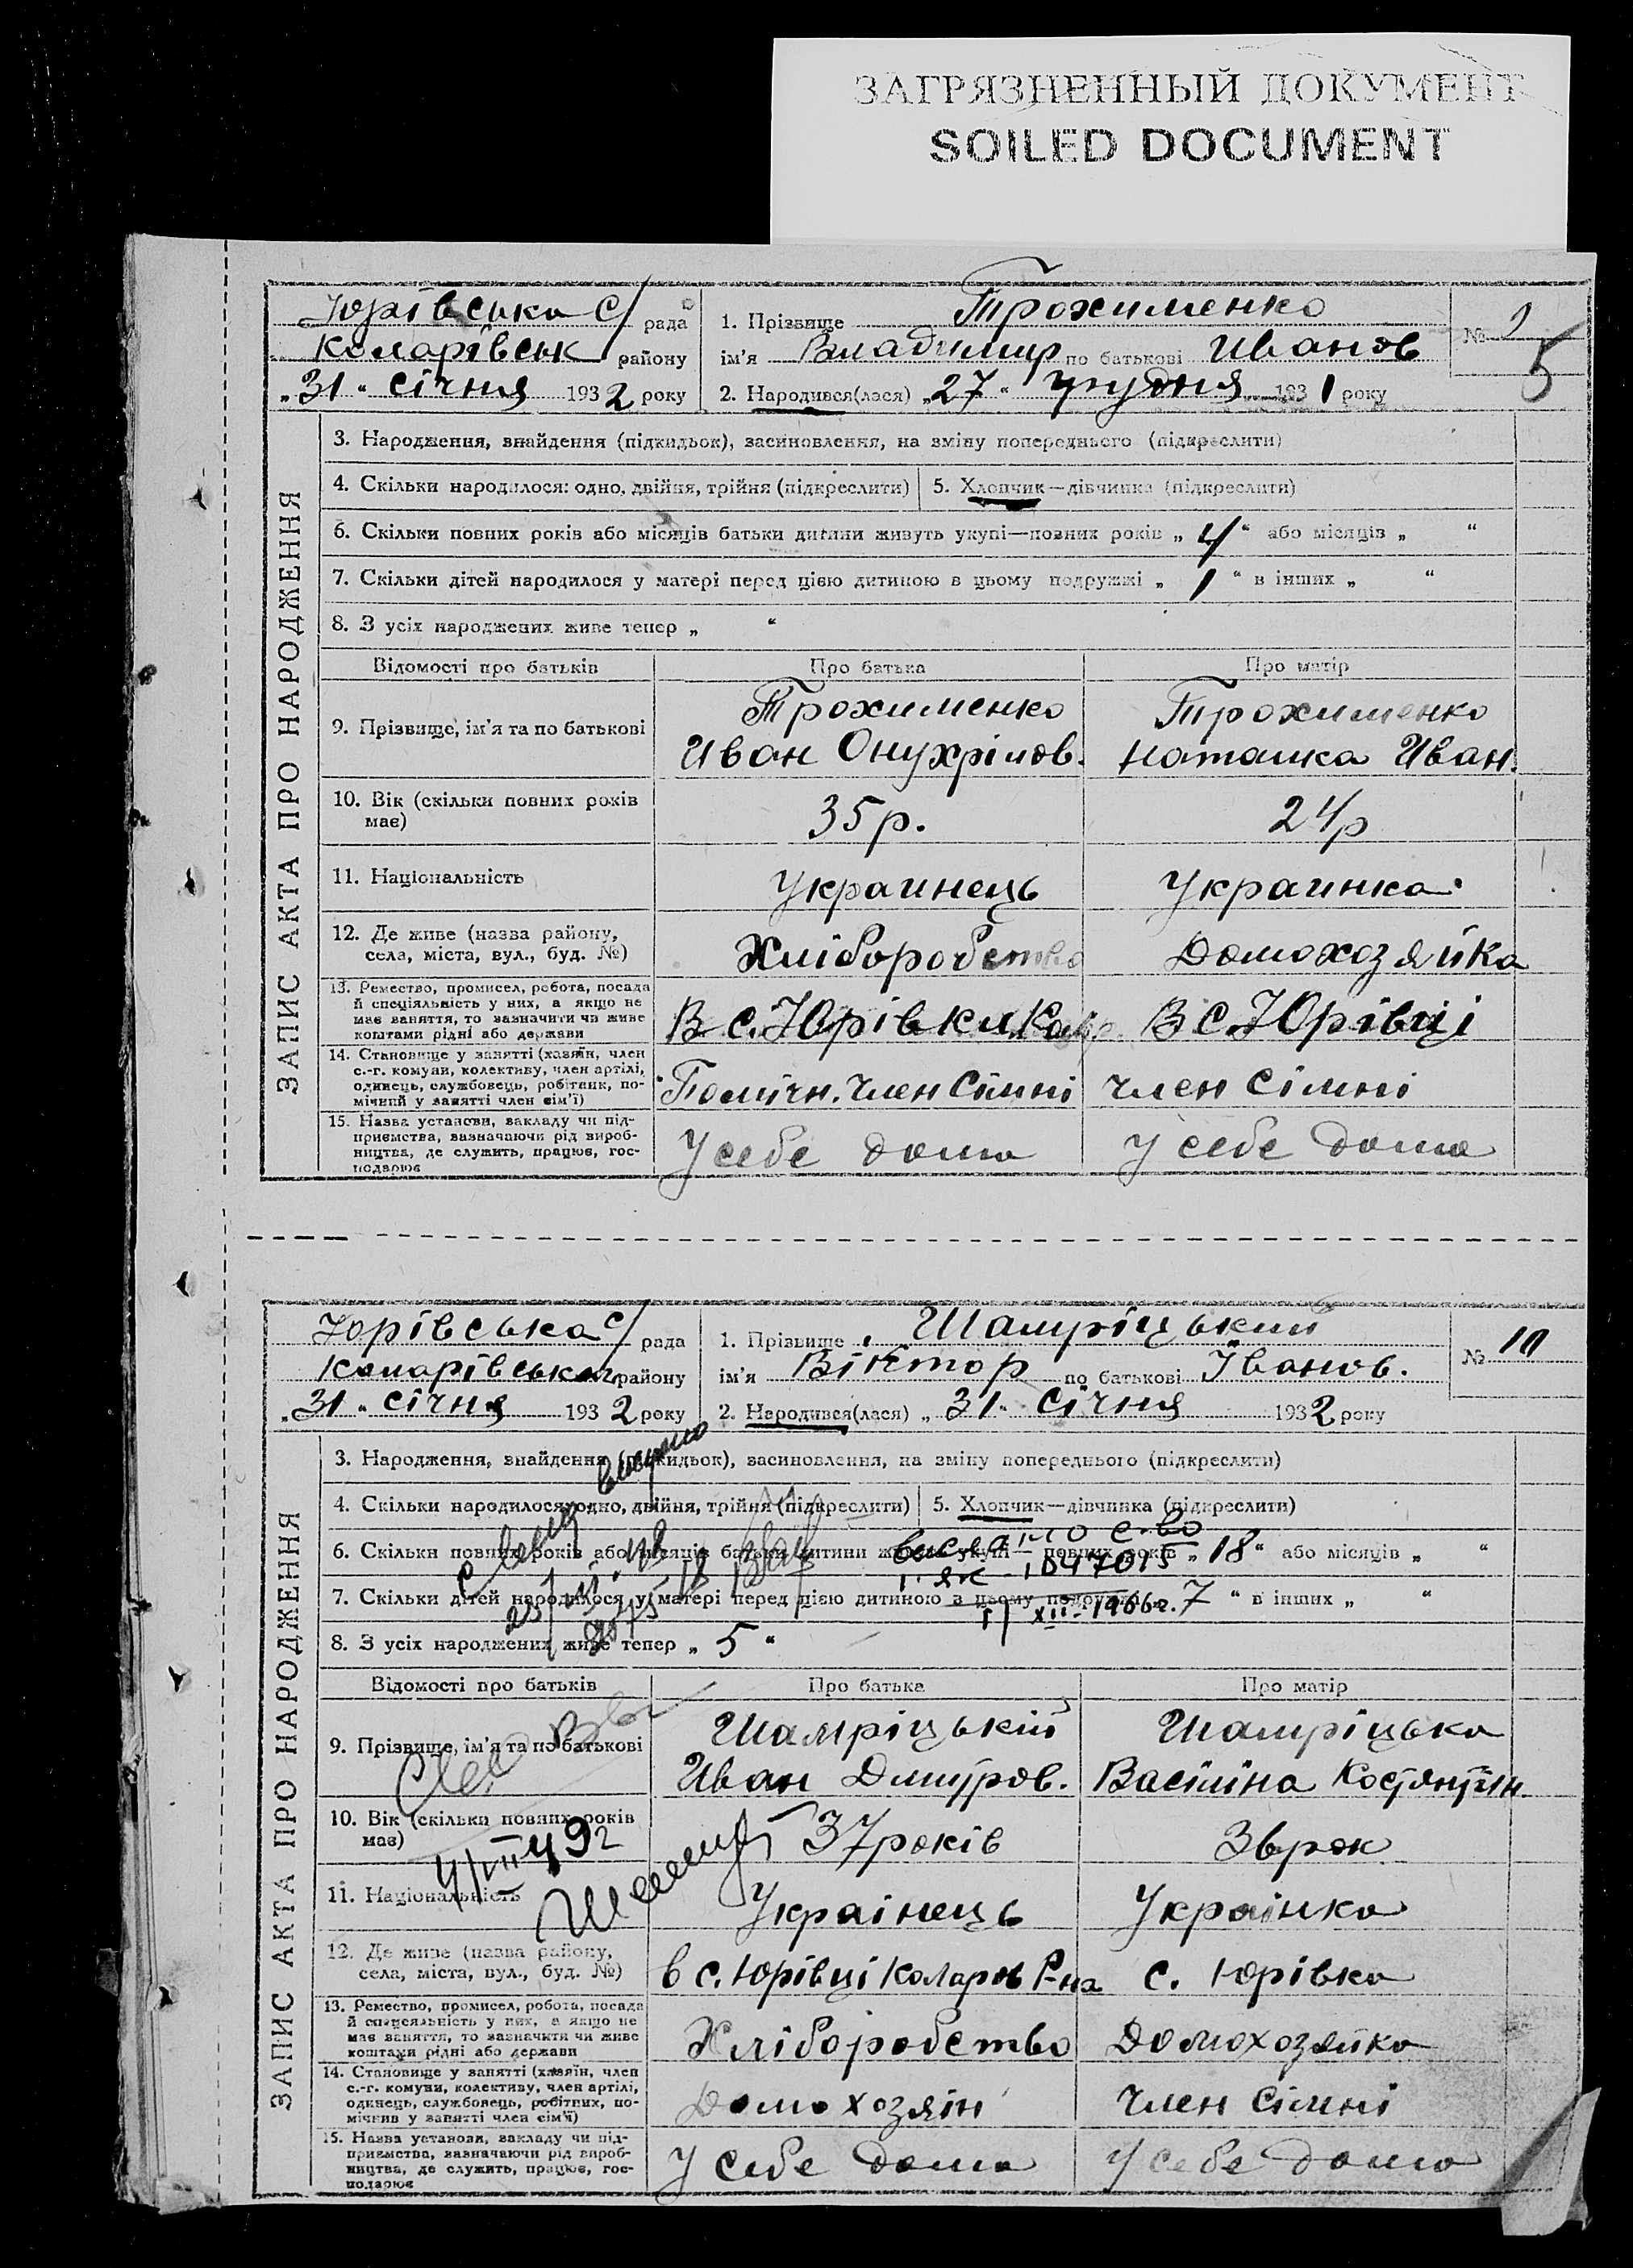 ЗАГРЯЗНЕННЫЙ ДОКУМЕНТ
SOILED DOCUMENT
Юрівська с/ рада
Коларівськ району
„31“ січня 1932 року
1. Прізвище Трохименко
ім'я Владимир по батькові Иванов
2. Народився(лася) „27“ грудня 1931 року
№
5
ЗАПИС АКТА ПРО НАРОДЖЕННЯ
3. Народження, внайдення (підкидьок), засиновлення, на зміну попереднього (підкреслити)
4. Скільки народилося: одно, двійня, трійня (підкреслити) 5. Хлопчик—дівчинка (підкреслити)
6. Скільки повних років або місяців батьки дитини живуть укупі—повних років „4“ або місяців „ “
7. Скільки дітей народилося у матері перед цією дитиною в цьому подружжі „1“ в інших „ “
8. З усіх народжених живе тепер „ “
Відомості про батьків Про батька Про матір
9. Прізвище, ім'я та по батькові
Трохименко
Иван Онухрілов.
Трохименко
Наташка Иван.
10. Вік (скільки повних років
має)
35 р.
24р
11. Національність Украинець Украинка
12. Де живе (назва району,
села, міста, вул., буд. №)
Хліборобство
Домохозяйка
13. Ремество, промисел, робота, посада
й спеціяльність у них, а якщо не
має заняття, то зазначити чи живе
коштами рідні або держави
В с. Юрівки
В с. Юрівці
14. Становище у занятті (хазяїн, член
с.-г. комуни, колективу, член артілі,
одинець, службовець, робітник, по-
мічний у занятті член сім'ї)
Помічн. Член Сімні
Член Сімні
15. Назва установи, закладу чи під-
приємства, зазначаючи рід вироб-
ництва, де служить, працює, гос-
подарює
У себе дома
У себе дома
Юрівська с/ рада
Коларівського району
„31“ січня 1932 року
1. Прізвище Шамріцький
ім'я Віктор по батькові Іванов.
2. Народився(лася) „31“ Січня 1932 року
№ 10
ЗАПИС АКТА ПРО НАРОДЖЕННЯ
3. Народження, внайдення (підкидьок), засиновлення, на зміну попереднього (підкреслити)
4. Скільки народилося: одно, двійня, трійня (підкреслити) 5. Хлопчик—дівчинка (підкреслити)
6. Скільки повних років або місяців батьки дитини живуть укупі— повних років „18“ або місяців „ “
выслано с-во
1047015
7. Скільки дітей народилося у матері перед цією дитиною в цьому подружжі 7 “ в інших „ “
XII-1966г.
8. З усіх народжених живе тепер „5“
Відомості про батьків Про батька Про матір
9. Прізвище, ім'я та по батькові
Шамріцький
Иван Дмитров.
Шамріцька
Васіліна Костянтін.
10. Вік (скільки повних років
має)
37 років
36 рок
11. Національність Українець Українка
12. Де живе (назва району,
села, міста, вул., буд. №)
в с. Юрівці Коларов Р-на
с. Юрівка
13. Ремество, промисел, робота, посада
й спеціяльність у них, а якщо не
має заняття, то зазначити чи живе
коштами рідні або держави
Хліборобство
Домохозяйка
14. Становище у занятті (хазяїн, член
с.-г. комуни, колективу, член артілі,
одинець, службовець, робітник, по-
мічний у занятті член сім'ї)
Домохозяін
Член Сімні
15. Назва установи, закладу чи під-
приємства, зазначаючи рід вироб-
ництва, де служить, працює, гос-
подарює
У себе дома
У себе дома